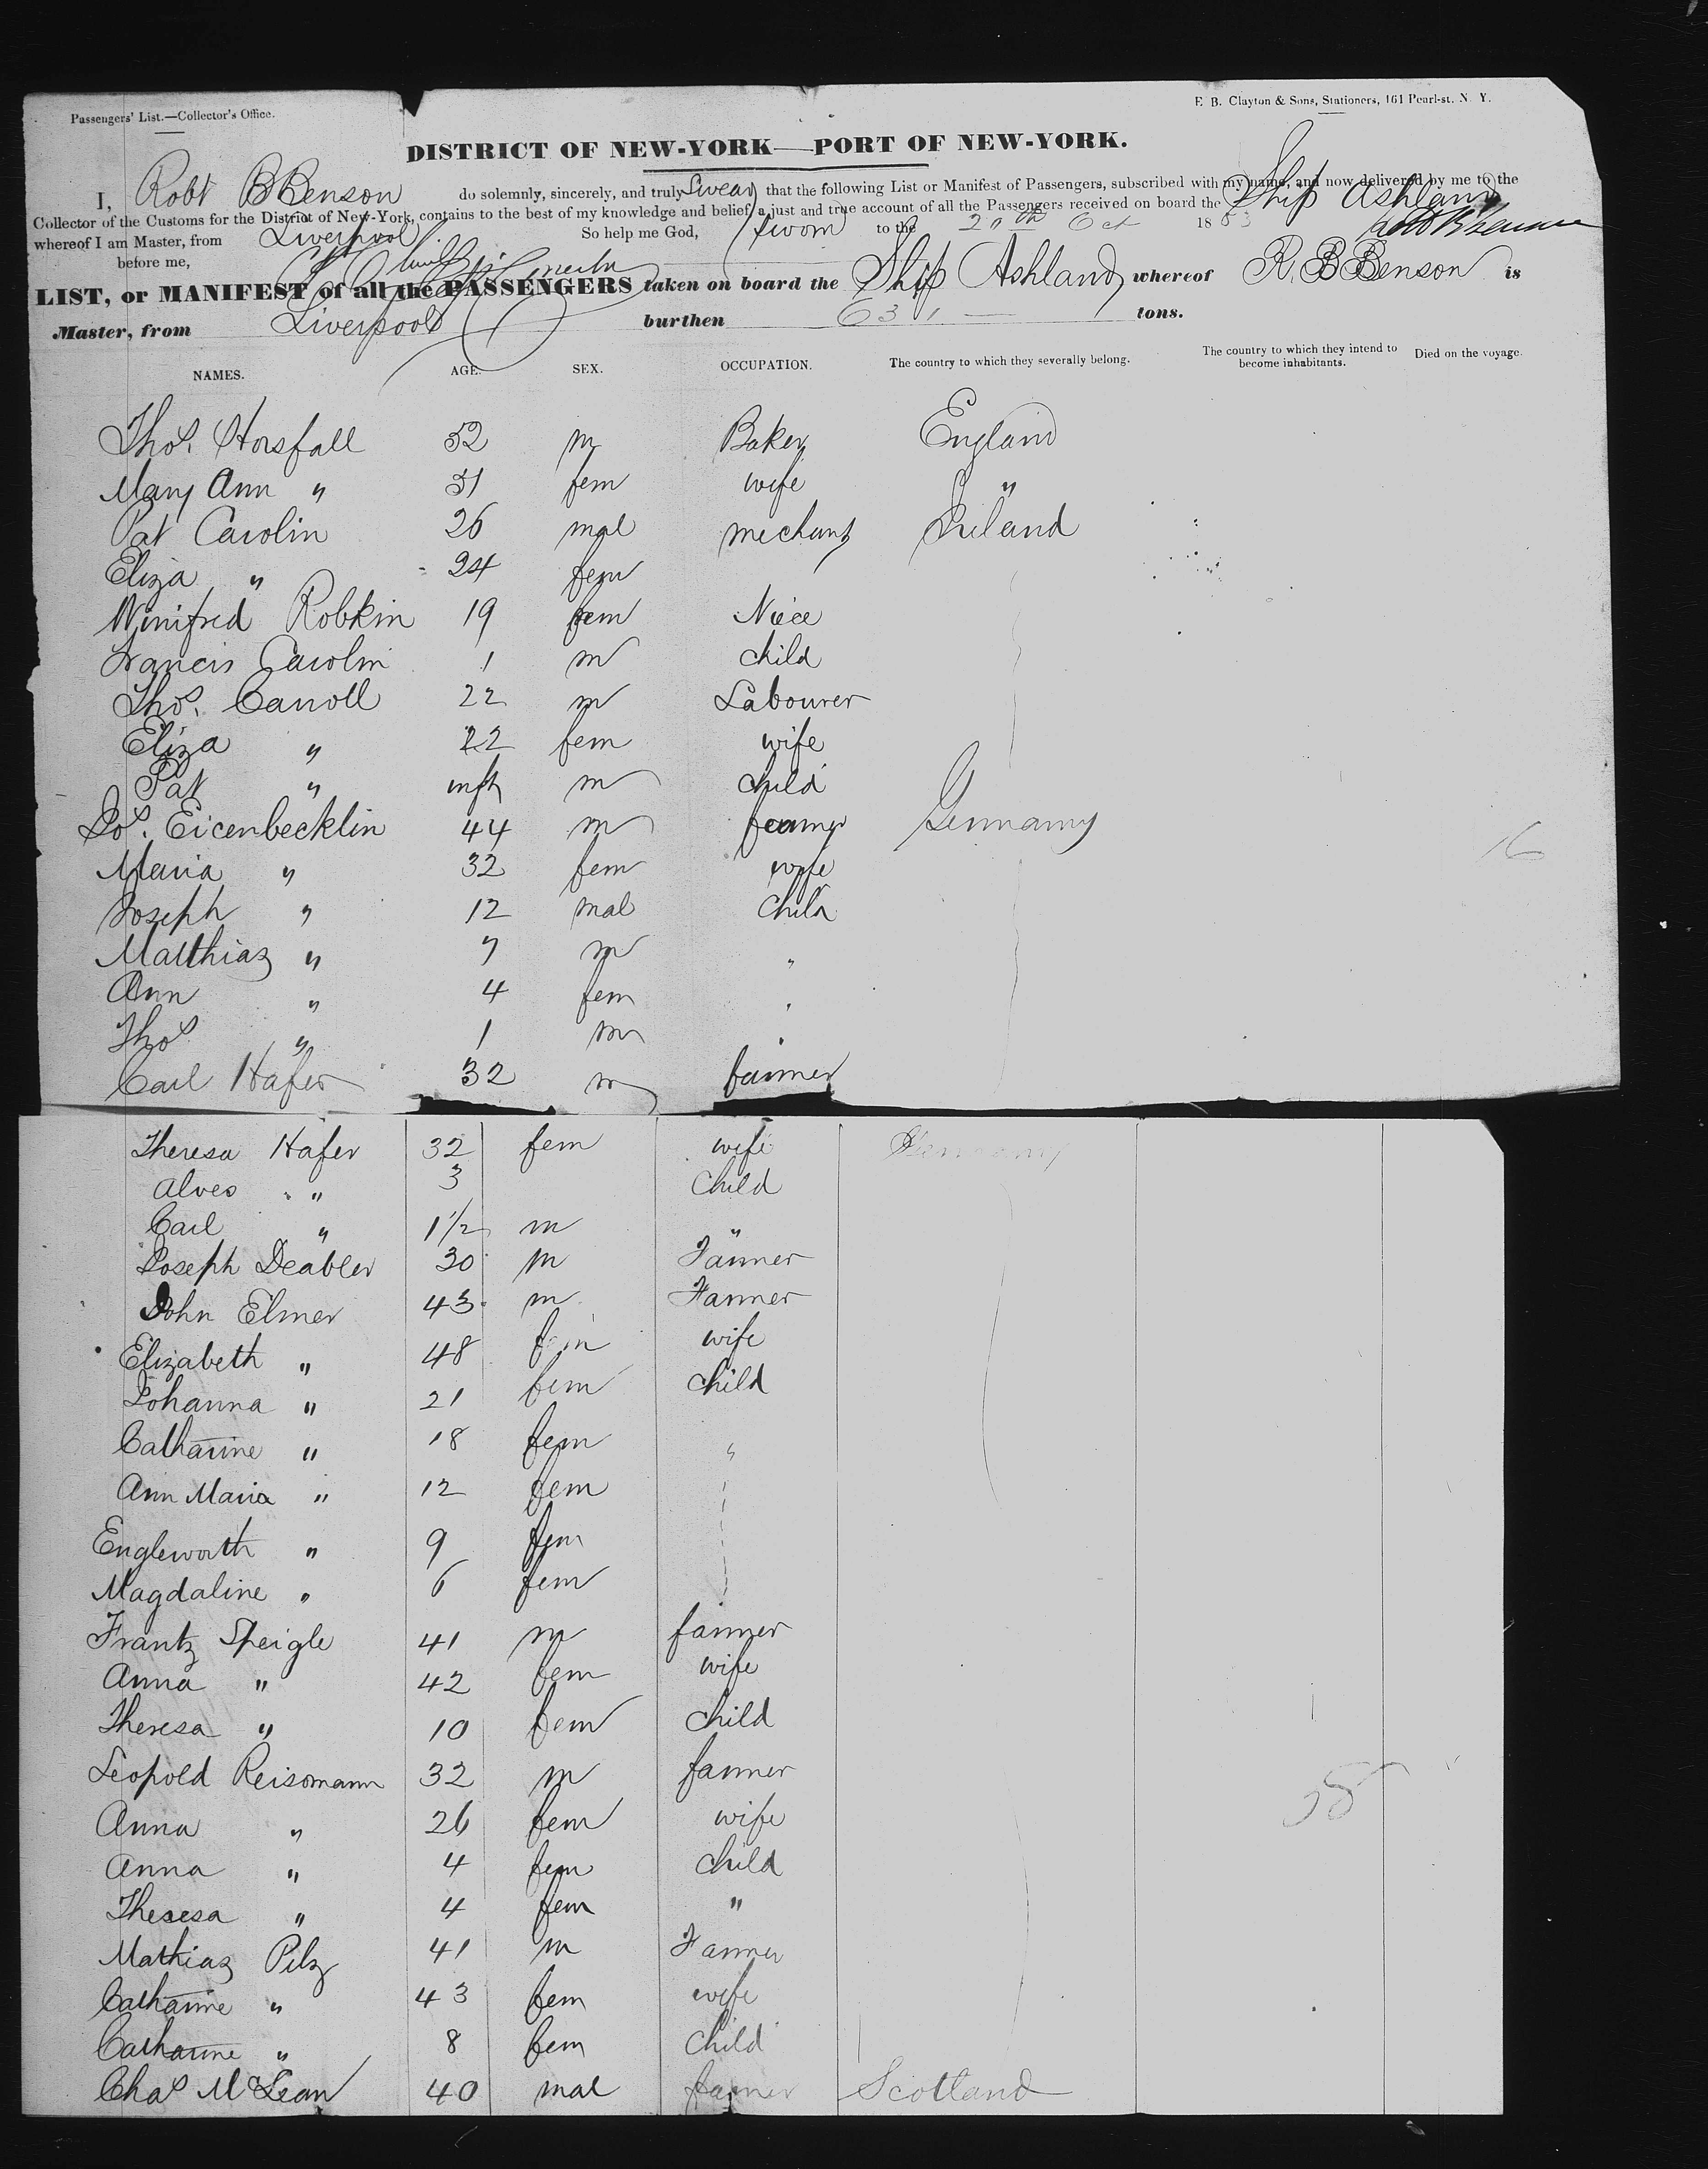 Passengers' List.—Collector's Office.
E. B. Clayton & Sons, Stationers, 161 Pearl-st. N. Y.
DISTRICT OF NEW-YORK—PORT OF NEW-YORK.
I, Robt B Benson do solemnly, sincerely, and truly Swear that the following List or Manifest of Passengers, subscribed with my name, and now delivered by me to the
Collector of the Customs for the District of New-York, contains to the best of my knowledge and belief, a just and true account of all the Passengers received on board the Ship Ashland
whereof I am Master, from Liverpool So help me God, Sworn to the 20th Oct 1853
before me,
LIST, or MANIFEST of all the PASSENGERS taken on board the Ship Ashland whereof R. B Benson is
Master, from Liverpool burthen 631 tons.
NAMES. AGE. SEX. OCCUPATION. The country to which they severally belong. The country to which they intend to become inhabitants. Died on the voyage.
Thos. Horsfall 32 m Baker England
Mary Ann " 31 fem wife "
Pat Carolin 26 mal mechant Ireland
Eliza " 24 fem
Winifred Robkin 19 fem Niece
Francis Carolin 1 m child
Thos. Carroll 22 m Labourer
Eliza " 22 fem wife
Pat " inft m child
Jos. Eicenbecklin 44 m farmer Germany
Maria " 32 fem wife
Joseph " 12 mal child
Matthias " 7 m "
Ann " 4 fem "
Thos " 1 m "
Carl Hafer 32 m farmer
16
Theresa Hafer 32 fem wife Germany
Alves " 3 child
Carl " 1 1/2 m "
Joseph Deabler 30 m Farmer
John Elmer 43 m Farmer
Elizabeth " 48 fem wife
Johanna " 21 fem child
Catharine " 18 fem "
Ann Maria " 12 fem
Engleworth " 9 fem
Magdaline " 6 fem
Frantz Speigle 41 m farmer
Anna " 42 fem wife
Theresa " 10 fem child
Leopold Reisomann 32 m farmer
38
Anna " 26 fem wife
Anna " 4 fem child
Theresa " 4 fem "
Mathias Pilz 41 m Farmer
Catharine " 43 fem wife
Catharine " 8 fem child
Chas McLean 40 mal farmer Scotland